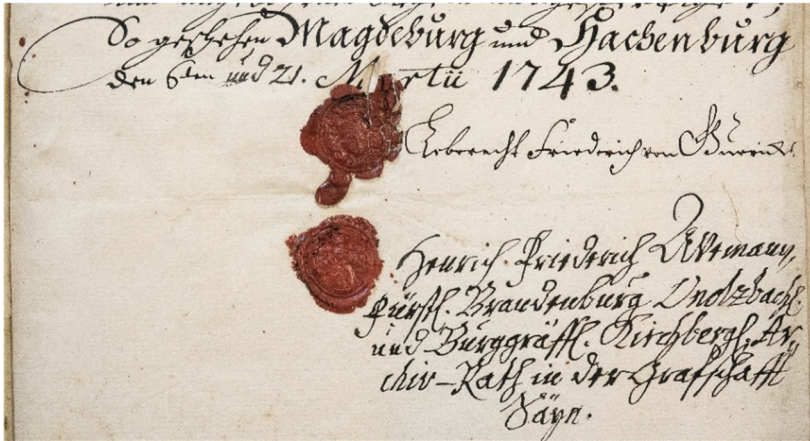 So geschehen Magdeburg und Hachenburg
den 6ten und 21. Martii 1743.
Leberecht Friederich von
Henrich Friederich Avemann,
Fürstl. Brandenburg Onolzbachl.
und Burggräffl. Kirchbergl. Ar„
chiv-Rath in der Grafschafft
Säyn.